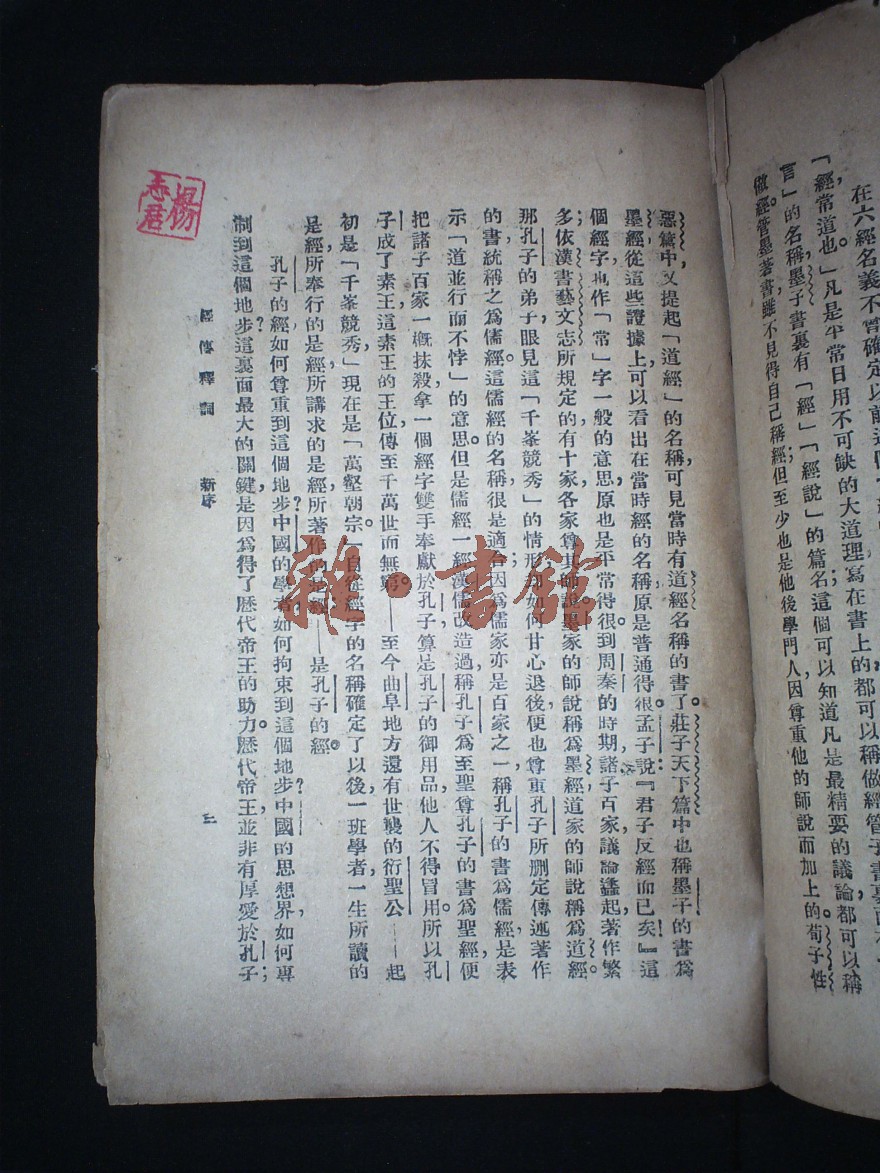 在六經名義不曾確定以前這個
「經常道也」凡是平常日用不可缺的大道理寫在書上的都可以稱做經管子書裏面
言」的名稱墨子書裏有「經」「經說」的篇名；這個可以知道凡是最精要的議論都可以稱
做經。管墨著書雖不見得自己稱經但至少也是他後學門人因尊重他的師說而加上的荀子性
惡篇中又提起「道經」的名稱，可見當時有道經名稱的書了。莊子天下篇中也稱墨子的書爲
墨經從這些證據上，可以看出在當時經的名稱原是普通得很。孟子說：『君子反經而已矣』這
個經字也作「常」字一般的意思原也是平常得很。到周秦的時期，諸子百家議論蠭起著作繁
多；依漢書藝文志所規定的，有十家各家尊其師說。墨家的師說稱爲墨經，道家的師說稱爲道經。
那孔子的弟子，眼見這「千峯競秀」的情形，却如何甘心退後，便也尊重孔子所刪定傳述著作
的書統稱之爲儒經。這儒經的名稱，很是適合因爲儒家亦是百家之一，稱孔子的書爲儒經，是表
示「道並行而不悖」的意思。但是儒經一經漢儒改造過，稱孔子爲至聖尊孔子的書爲聖經，便
把諸子百家一概抹殺，拿一個經字雙手奉獻於孔子，算是孔子的御用品，他人不得冒用。所以孔
子成了素王，這素王的王位，傳至千萬世而無窮。——至今曲阜地方還有世襲的衍聖公——起
初是「千峯競秀」，現在是「萬壑朝宗」。自從經字的名稱確定了以後，一班學者，一生所讀的
是經，所奉行的是經，所講求的是經，所著作的是經——是孔子的經。
孔子的經如何尊重到這個地步？中國的學者如何拘束到這個地步？中國的思想界如何專
制到這個地步？這裏面最大的關鍵，是因爲得了歷代帝王的助力。歷代帝王，並非有厚愛於孔子；
經傳釋詞　新序
三
楊
志君
雜·書館